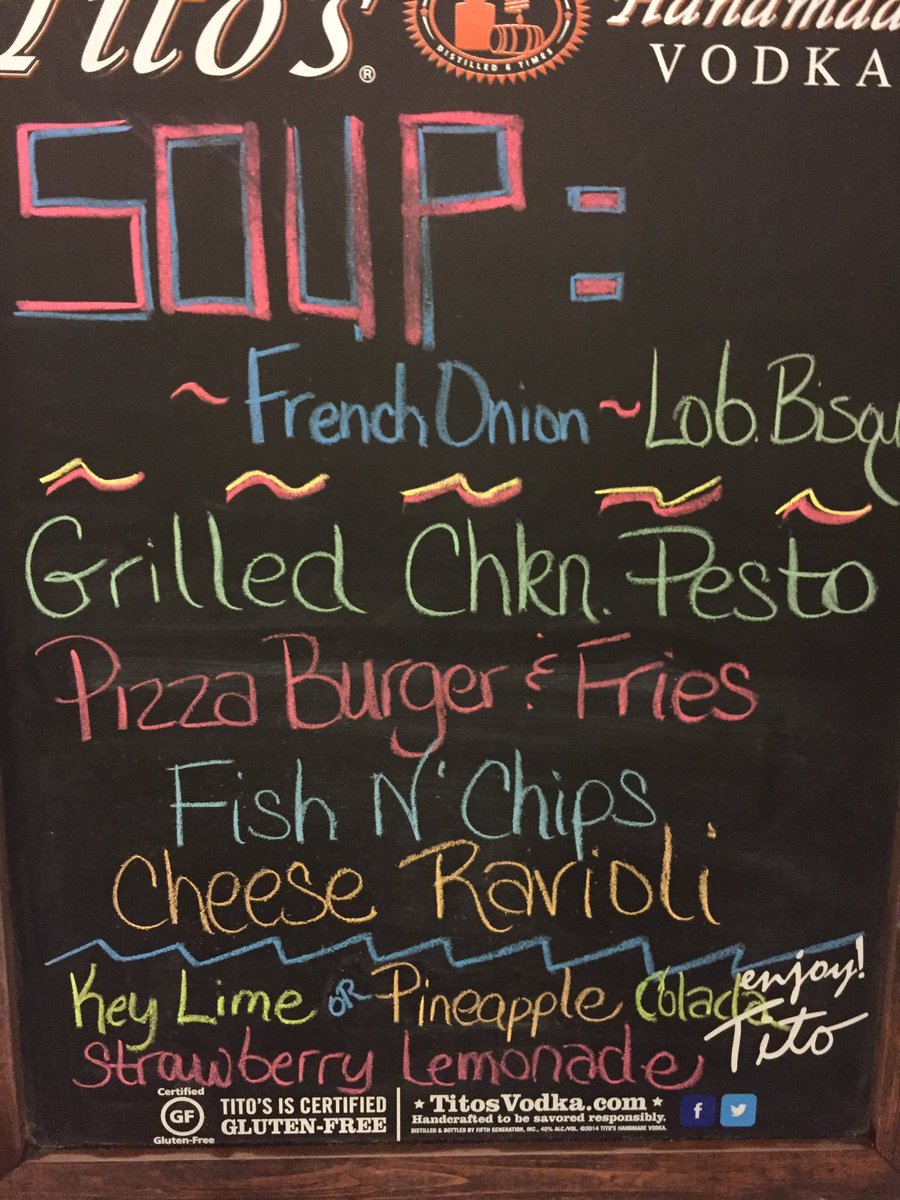 Tito's®
DISTILLED 6 TIMES
Handmad
VODKA
SOUP =
~ French Onion ~ Lob. Bisqu
Grilled Chkn. Pesto
Pizza Burger & Fries
Fish N' Chips
Cheese Ravioli
Key Lime OR Pineapple Colada
Strawberry Lemonade
enjoy!
Tito
Certified
GF
Gluten-Free
TITO'S IS CERTIFIED
GLUTEN-FREE
★ TitosVodka.com ★
Handcrafted to be savored responsibly.
DISTILLED & BOTTLED BY FIFTH GENERATION, INC. 40% ALC./VOL. ©2014 TITO'S HANDMADE VODKA.
f